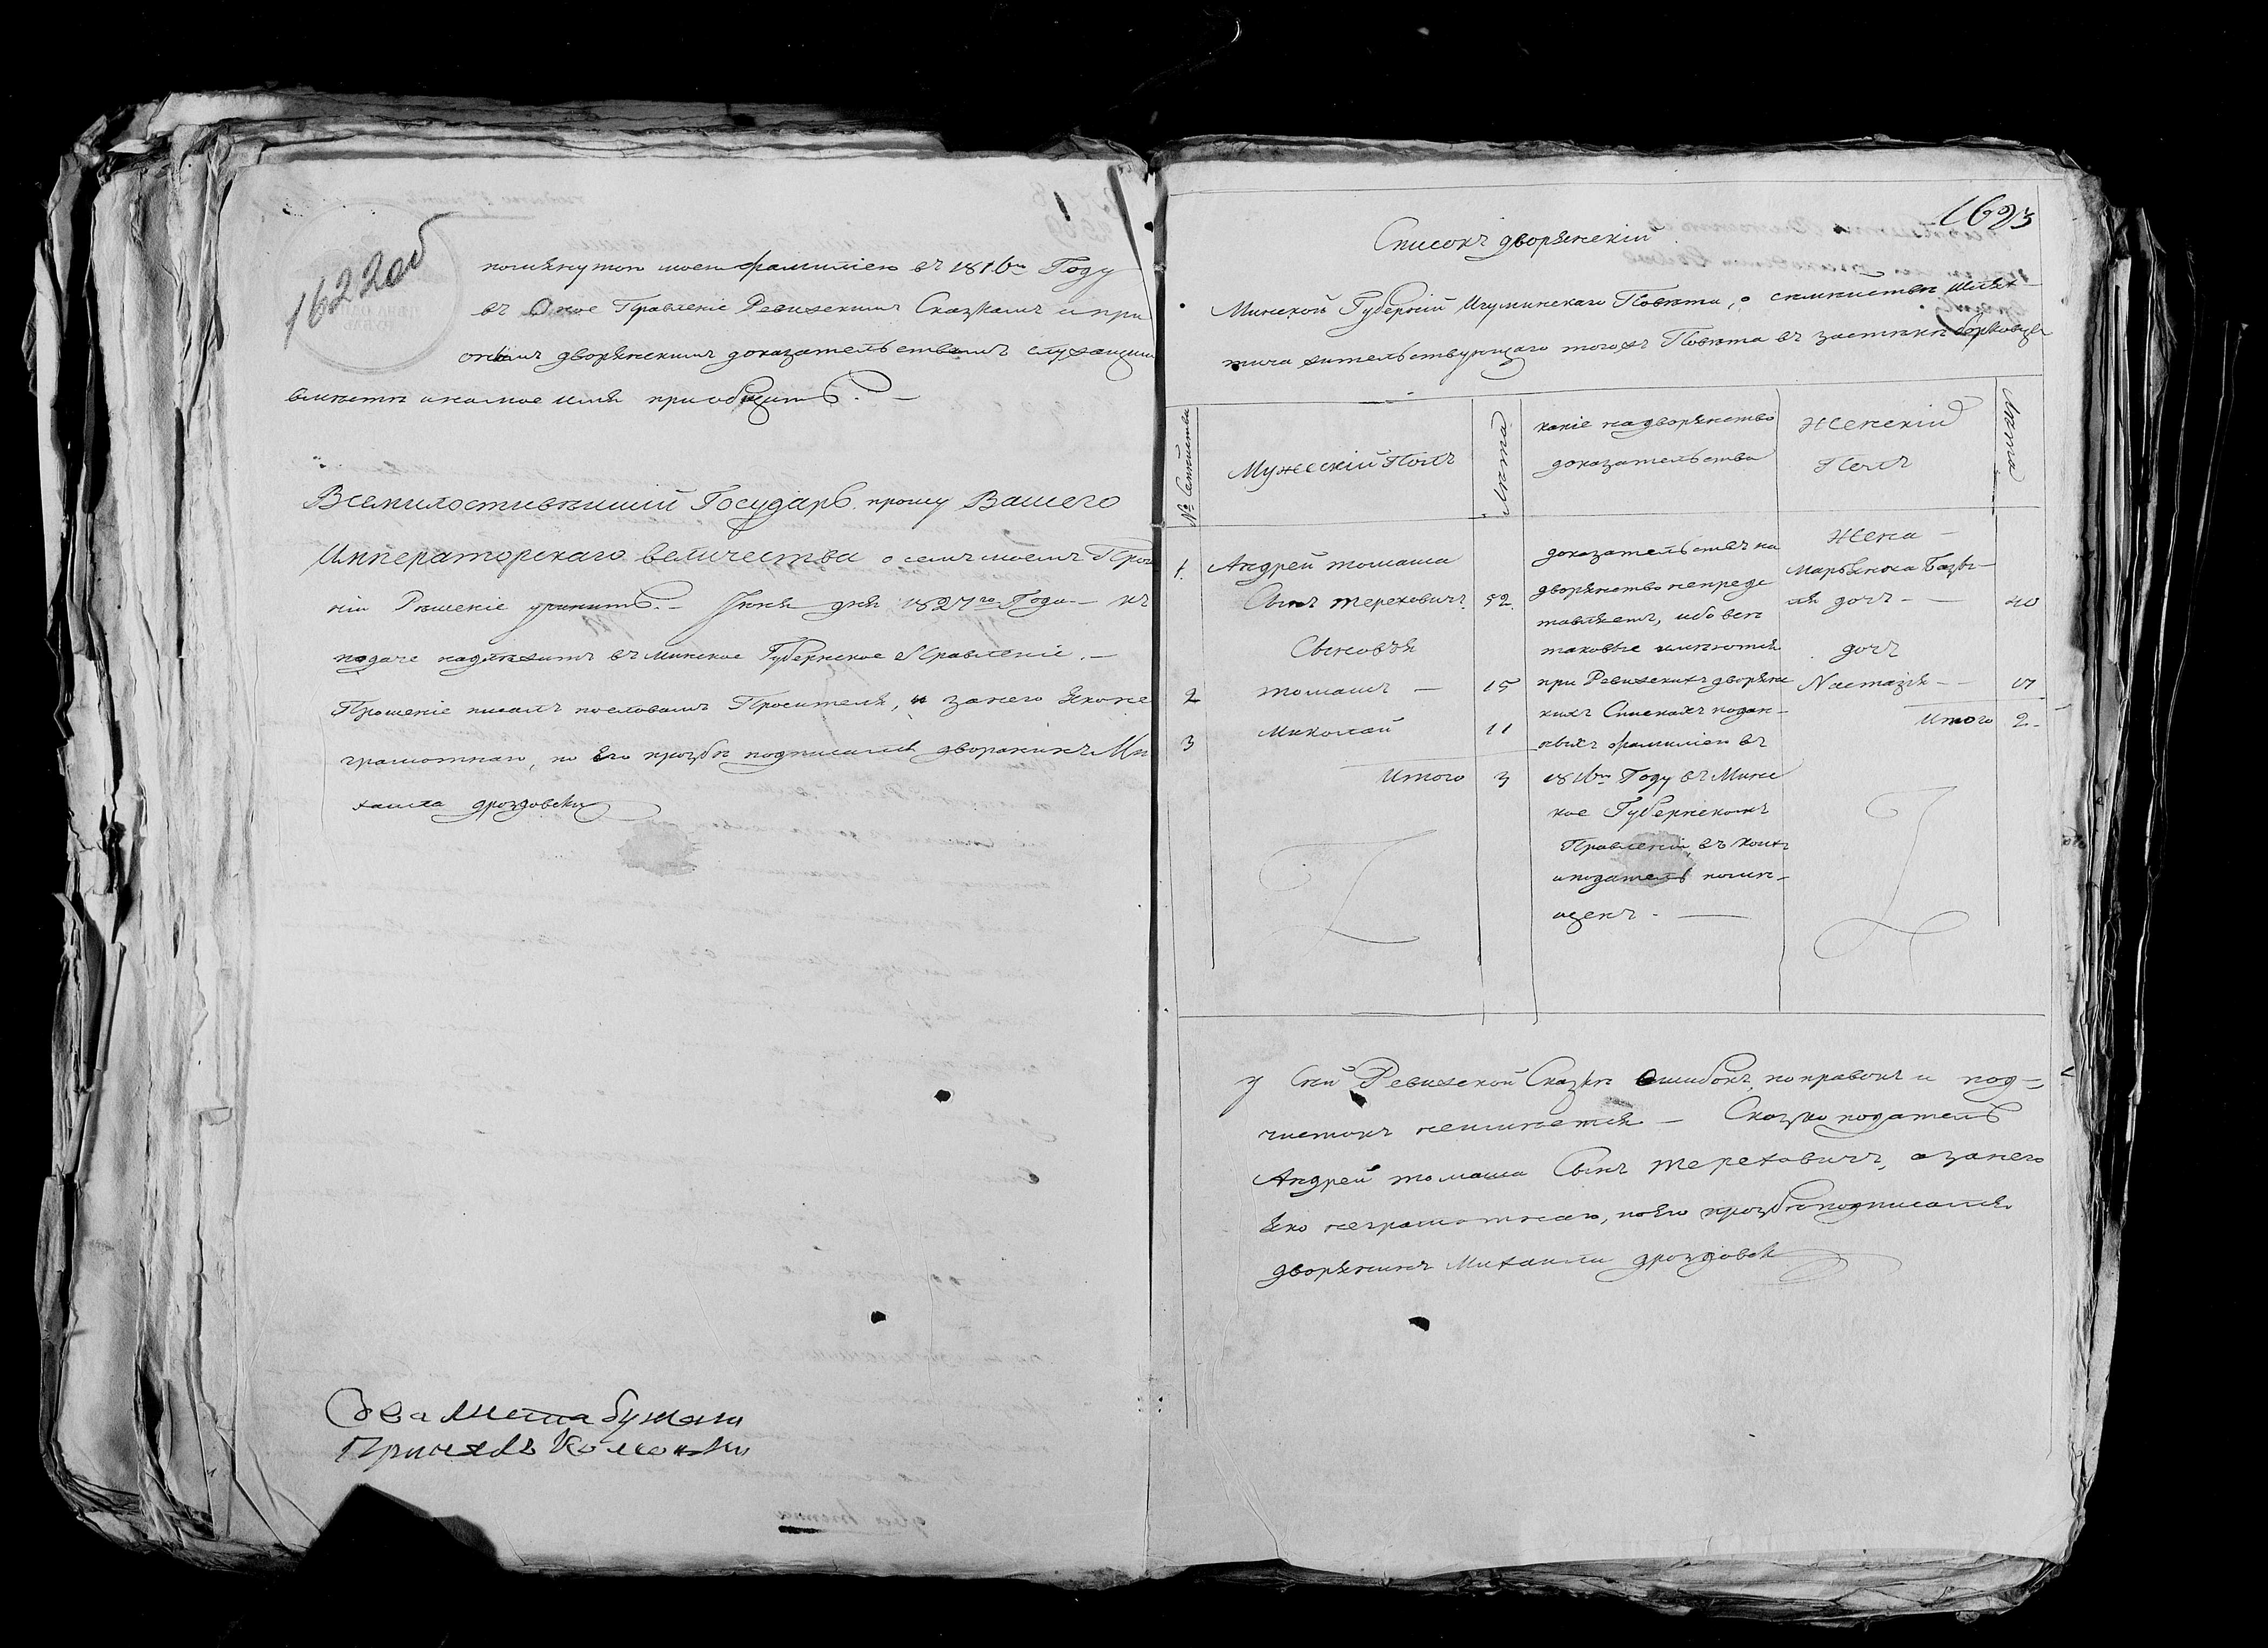 1622 об
помянутою моею фамилиею въ 1816мъ Году
въ Оное Правленіе Ревизскимъ Сказкамъ и при
онымъ дворянскимъ доказательствамъ служащимъ
вместе и на мое имя приобщить. —
Всемилостивейшій Государь прошу Вашего
Императорскаго Величества о семъ моемъ Проше
ніи Решеніе учинить. — Іюня дня 1827го Года — къ
подаче надлежитъ въ Минское Губернское Правленіе. —
Прошеніе писалъ по словамъ Просителя, и за него яко не
грамотнаго, по Его прозбе подписался дворянинъ Ми
хаила дроздовски
Два листа бумаги
Принялъ
1623
Списокъ дворянскій
Минской Губерніи Игуминскаго Повета, о семействе шлях
тича жительствующаго тогожъ Повета въ застенке
№ Семейства
Мужескій Полъ
Лета
какіе на дворянство
доказательства
Женскій
Полъ
Лета
1. Андрей томаша
Сынъ тереховичъ. 52.
Сыновья
2 томашъ — 15
3 Миколай 11
Итого 3
доказательствъ на
дворянство непредс
тавляетъ, ибо все
таковые имеются
при Ревизскихъ дворянс
кихъ Спискахъ подан-
ныхъ фамилиею въ
1816мъ Году въ Минс
кое Губернскомъ
Правленіи, въ коихъ
и податель поме-
щенъ. —
Жена —
Марьянна Базы-
ля дочъ — 40
дочъ
Настазія — 17
Итого 2.
у Сей Ревизской Сказке Ошибокъ, поправокъ и под-
чистокъ неимеется — Сказко податель
Андрей томаша Сынъ тереховичъ, а за него
яко неграмотнаго, по Его прозбе подписался
дворянинъ Михаила дроздовск